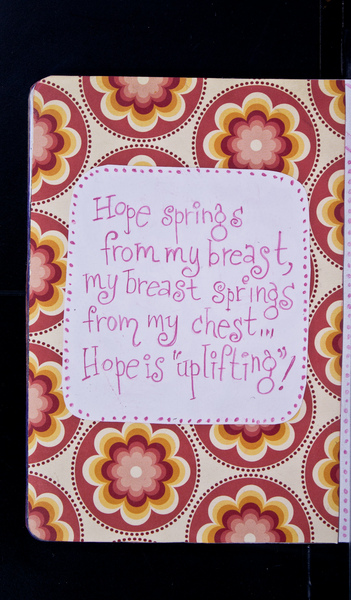 Hope springs
from my breast,
my breast springs
from my chest...
Hope is "uplifting"!